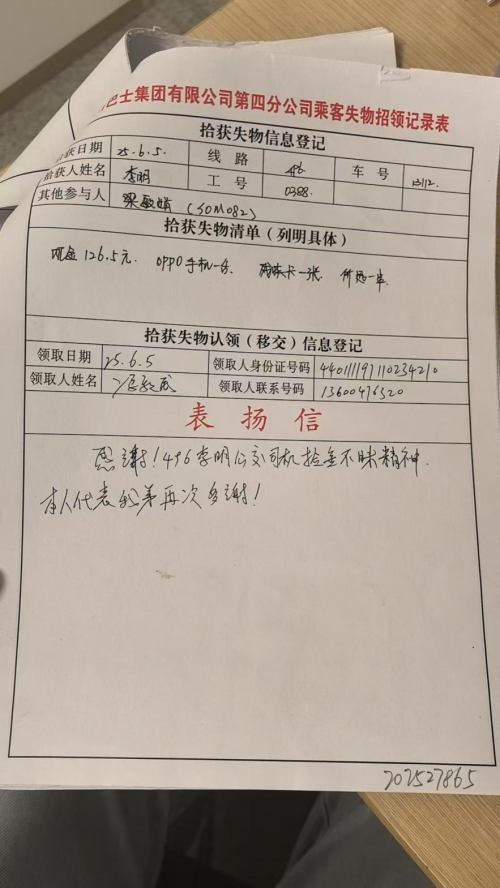 巴士集团有限公司第四分公司乘客失物招领记录表
拾获失物信息登记
拾获日期 25.6.5. 线路 496 车号 13112.
拾获人姓名 李明 工号 0388.
其他参与人 梁敏娟 (SOM082)
拾获失物清单（列明具体）
现金126.5元. OPPO手机一台. 卡一张.
拾获失物认领（移交）信息登记
领取日期 25.6.5 领取人身份证号码 440111197110234210
领取人姓名 领取人联系号码 13600476320
表扬信
感谢！496李明公交司机拾金不昧精神.
本人代表我弟再次多谢！
202527865